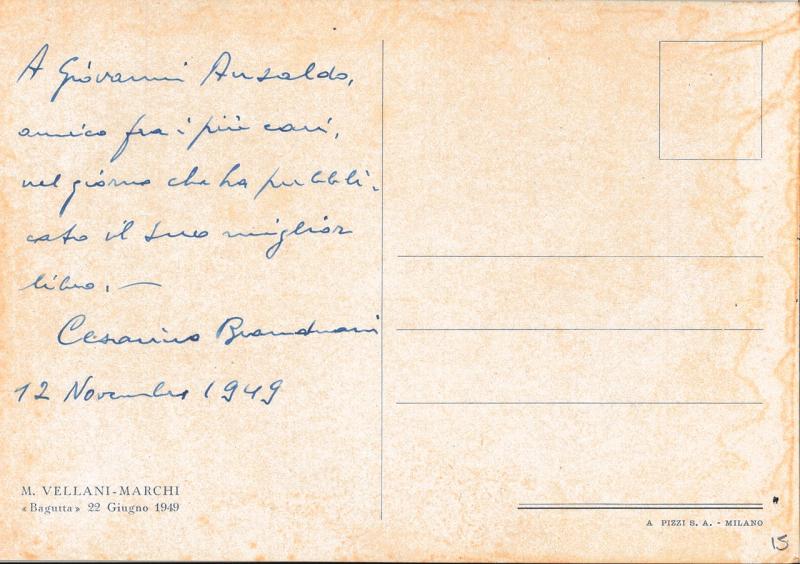 A Giovanni Ansaldo,
amico fra i più cari,
nel giorno che ha pubbli-
cato il suo miglior
libro. —
Cesarino Branduani
12 Novembre 1949
M. VELLANI-MARCHI
«Bagutta» 22 Giugno 1949
A PIZZI S. A. - MILANO
15